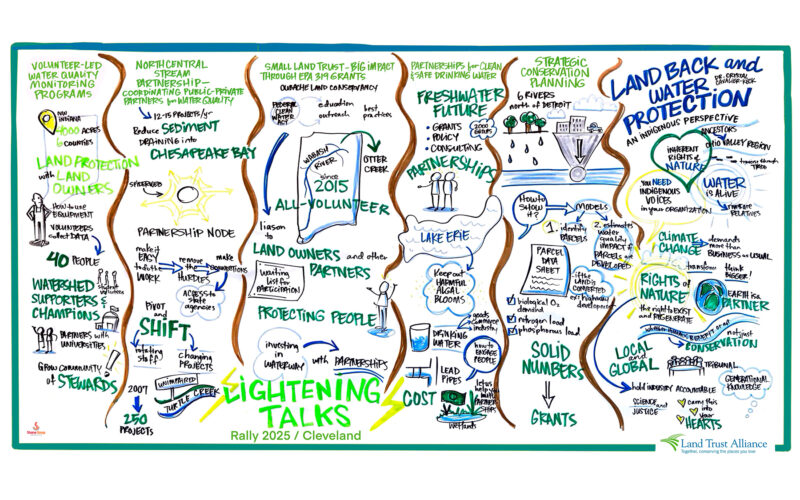 VOLUNTEER-LED
WATER QUALITY
MONITORING
PROGRAMS
INDIANA
4000 ACRES
6 COUNTIES
LAND PROTECTION
with LAND
OWNERS
How to use
EQUIPMENT
VOLUNTEERS
collect DATA
40 PEOPLE
WATERSHED
SUPPORTERS &
CHAMPIONS
PARTNERS with
UNIVERSITIES
GROW COMMUNITY
of STEWARDS
NORTHCENTRAL
STREAM
PARTNERSHIP-
COORDINATING PUBLIC-PRIVATE
PARTNERS for WATER QUALITY
12-15 PROJECTS/yr
Reduce SEDIMENT
DRAINING into
CHESAPEAKE BAY
SPIDERWEB
PARTNERSHIP NODE
make it
EASY
to do the
WORK
remove
the
HURDLES
make
CONNECTIONS
ACCESS to
state
agencies
Pivot and
SHIFT
rotating
staff
changing
PROJECTS
2007
250
PROJECTS
UNIMPAIRED
TURTLE CREEK
SMALL LAND TRUST-BIG IMPACT
THROUGH EPA 319 GRANTS
OUABACHE LAND CONSERVANCY
FEDERAL
CLEAN
WATER
ACT
education
outreach
best
practices
WABASH
RIVER
OTTER
CREEK
since
2015
ALL-VOLUNTEER
liaison
to
LAND OWNERS and other
PARTNERS
Waiting
list for
PARTICIPATION
PROTECTING PEOPLE
investing
in
WATERWAY
with PARTNERSHIPS
LIGHTENING
TALKS
Rally 2025 / Cleveland
PARTNERSHIPS for CLEAN
& SAFE DRINKING WATER
FRESHWATER
FUTURE
• GRANTS
• POLICY
• CONSULTING
2000
GROUPS
PARTNERSHIPS
LAKE ERIE
Keep out
HARMFUL
ALGAL
BLOOMS
DRINKING
WATER
goods
summer
industry
how to
ENGAGE
PEOPLE
LEAD
PIPES
COST
Wetlands
STRATEGIC
CONSERVATION
PLANNING
6 RIVERS
north of DETROIT
How to
SHOW
it?
MODELS
1. identify
PARCELS
2. estimates
water
quality
impact if
PARCELS are
DEVELOPED
PARCEL
DATA
SHEET
if the
LAND IS
CONVERTED
biological O₂
demand
nitrogen load
phosphorous load
SOLID
NUMBERS
GRANTS
LAND BACK and
WATER
PROTECTION
AN INDIGENOUS PERSPECTIVE
ANCESTORS
OHIO VALLEY REGION
INHERENT
RIGHTS of
NATURE
YOU NEED
INDIGENOUS
VOICES
in your ORGANIZATION
WATER
IS ALIVE
RELATIVES
CLIMATE
CHANGE
demands
more than
BUSINESS as USUAL
transform
think
BIGGER!
RIGHTS of
NATURE
the right to EXIST
and REGENERATE
EARTH is a
PARTNER
not just
CONSERVATION
LOCAL
and
GLOBAL
TRIBUNAL
hold INDUSTRY ACCOUNTABLE
GENERATIONAL
KNOWLEDGE
SCIENCE and
JUSTICE
carry this
into
your
HEARTS
Land Trust Alliance
Together, conserving the places you love